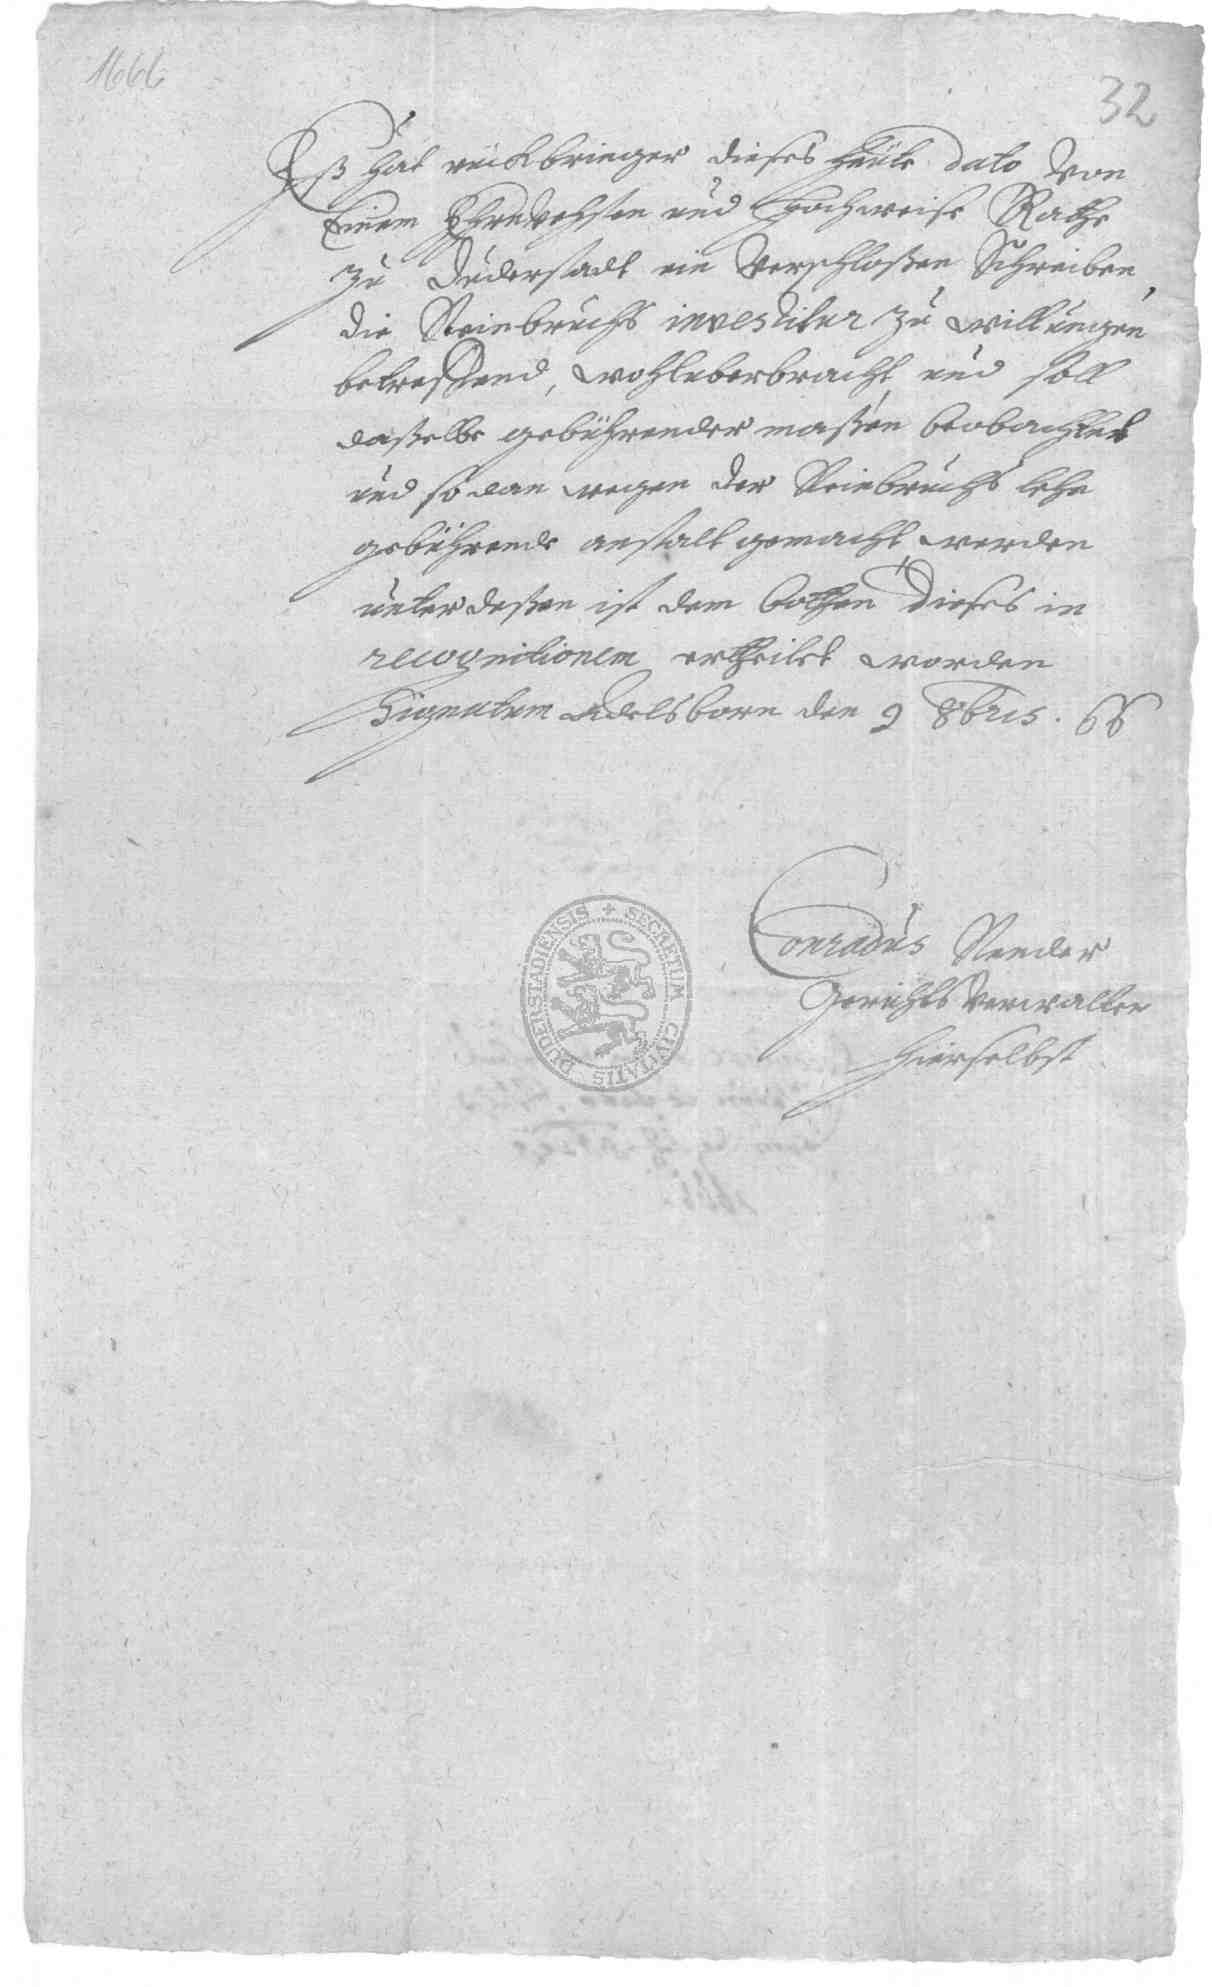 1666
32
Eß hat rückbringer dieses heüte dato von
Einem Ehrnvehsten und Hochweise Rathe
zu Duderstadt ein verschloßen Schreiben,
die Steinbruchs investitur zu willungen
betreffend, wohl uberbracht, und soll
daßelbe gebührender maßen beobachtet
und so dan wegen der Steinbruchs lehn
gebührende anstalt gemacht werden
unter deßen ist dem bothen dieses in
recognitionem ertheilet worden
Signatum Adelsborn den 9 8bris. 66
Conradus Stender
Gerichts verwalter
hierselbst
SECRETUM CIVITATIS DUDERSTADIENSIS